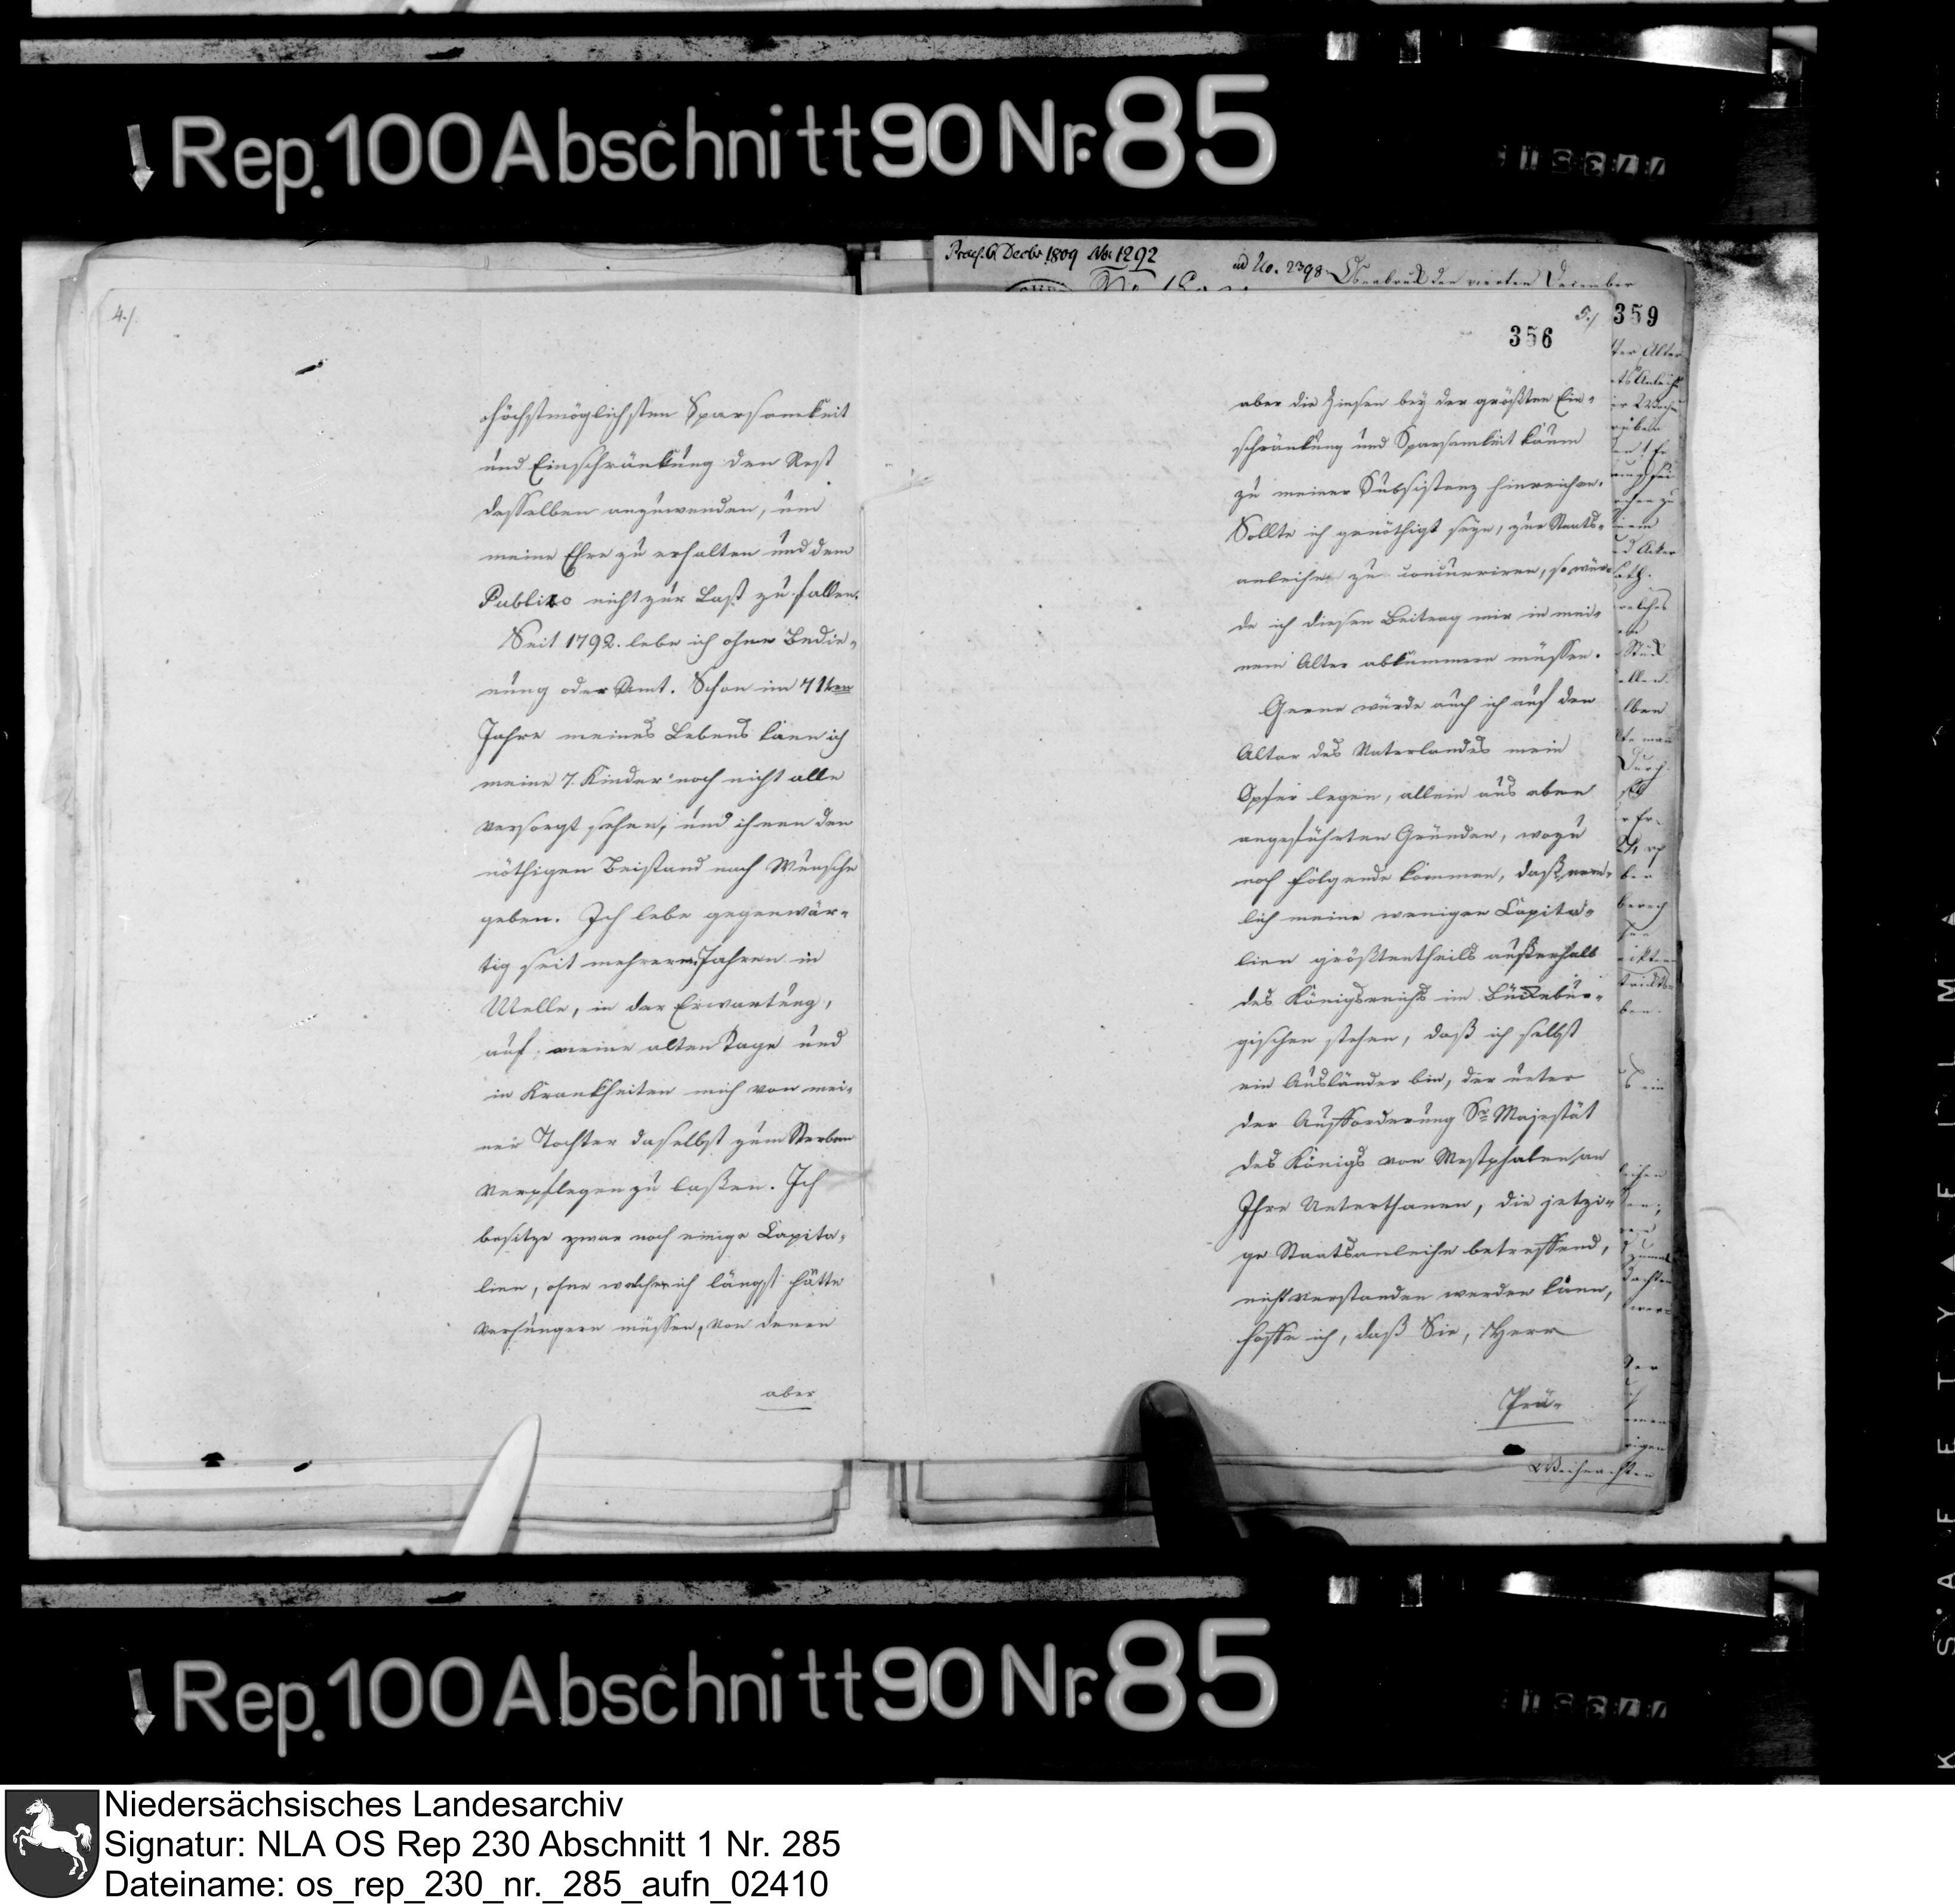 Rep. 100 Abschnitt 90 Nr. 85
Praes. 6 Decbr 1809 No. 1292
ad No. 2398
Osnabruck den vierten December
4./.
höchstmöglichsten Sparsamkeit
und Einschränkung den Rest
desselben anzuwenden, um
meine Ehre zu erhalten und dem
Publiko nicht zur Last zu fallen.
Seit 1792. lebe ich ohne Bedie-
nung oder Amt. Schon im 71ten
Jahre meines Lebens kann ich
meine 7. Kinder noch nicht alle
versorgt sehen, und ihnen den
nöthigen Beistand nach Wunsche
geben. Ich lebe gegenwär-
tig seit mehreren Jahren in
Melle, in der Erwartung,
auf meine alten Tage und
in Krankheiten mich von mei-
ner Tochter daselbst zum Sterben
verpflegen zu laßen. Ich
besitze zwar noch einige Capita-
lien, ohne welche ich längst hätte
verhungern müssen, von denen
aber
5./.
356
359
aber die Zinsen bey der größten Ein-
schränkung und Sparsamkeit kaum
zu meiner Subsistenz hinreichen.
Sollte ich genöthigt seyn, zur Staats-
anleihe zu concurriren, so wür-
de ich diesen Beitrag mir in mei-
nem Alter abkümmern müssen.
Gerne würde auch ich auf den
Altar des Vaterlandes mein
Opfer legen, allein aus oben
angeführten Gründen, wozu
noch folgende kommen, daß nem-
lich meine wenigen Capita-
lien größtentheils außerhalb
des Königreichs im Bückebur-
gischen stehen, daß ich selbst
ein Ausländer bin, der unter
der Aufforderung Sr. Majestät
des Königs von Westphalen an
Ihre Unterthanen, die jetzi-
ge Staatsanleihe betreffend,
nicht verstanden werden kann,
hoffe ich, daß Sie, Herr
Prä-
Weihnachten
Rep. 100 Abschnitt 90 Nr. 85
Niedersächsisches Landesarchiv
Signatur: NLA OS Rep 230 Abschnitt 1 Nr. 285
Dateiname: os_rep_230_nr._285_aufn_02410